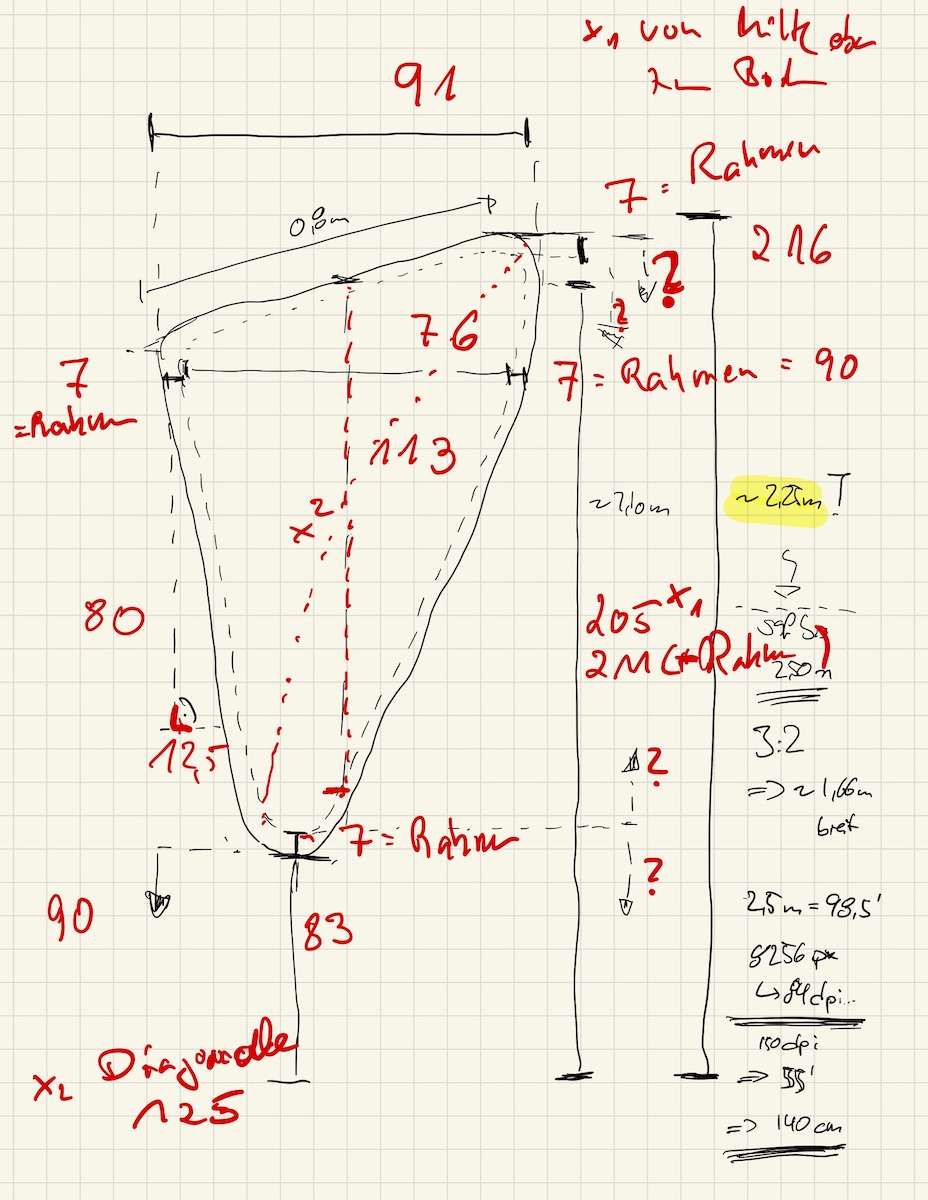 x₁ von Mitte oben
zum Boden
91
7 = Rahmen
216
0,8m
?
76
?
7
=Rahmen
7 = Rahmen = 90
113
x2
~2,10m
~2,25m
80
205 x₁
211 (+Rahmen)
2,50m
12,5
3:2
?
=> ~1,66m
breit
7 = Rahmen
?
90
83
2,5m = 98,5'
8256 px
↳ 84dpi..
150dpi
=> 55'
=> 140 cm
x₂ Diagonale
125